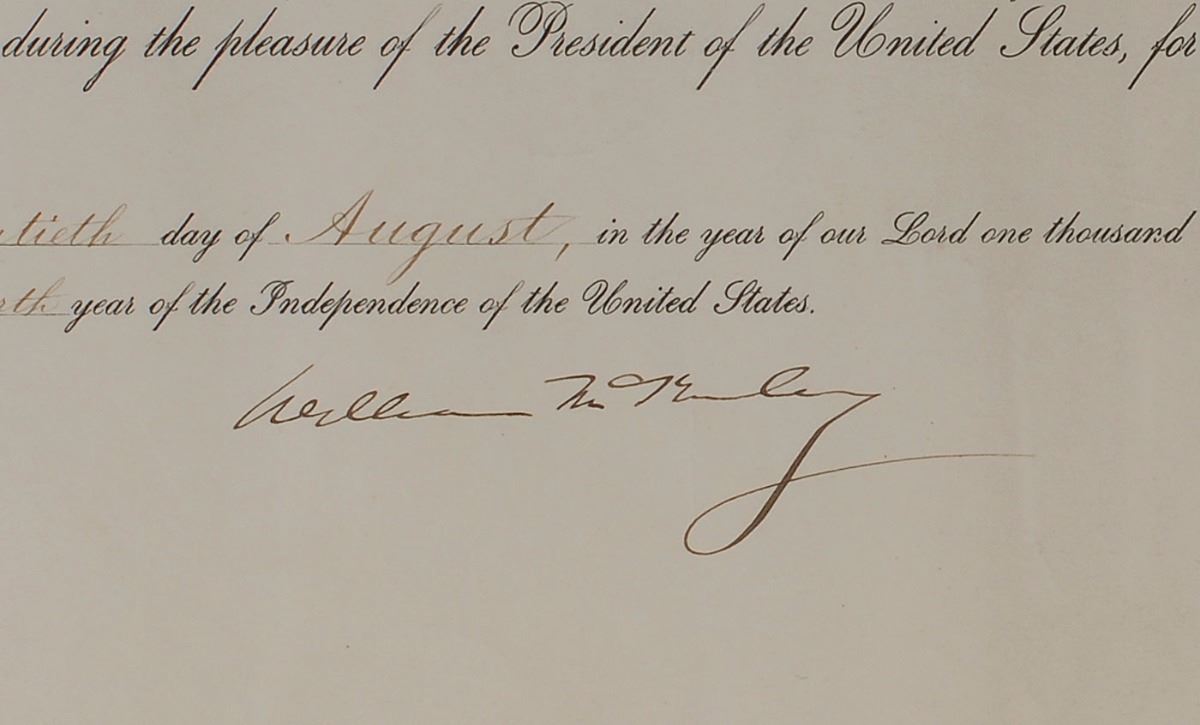 during the pleasure of the President of the United States, for
tieth day of August, in the year of our Lord one thousand
rth year of the Independence of the United States.
William McKinley